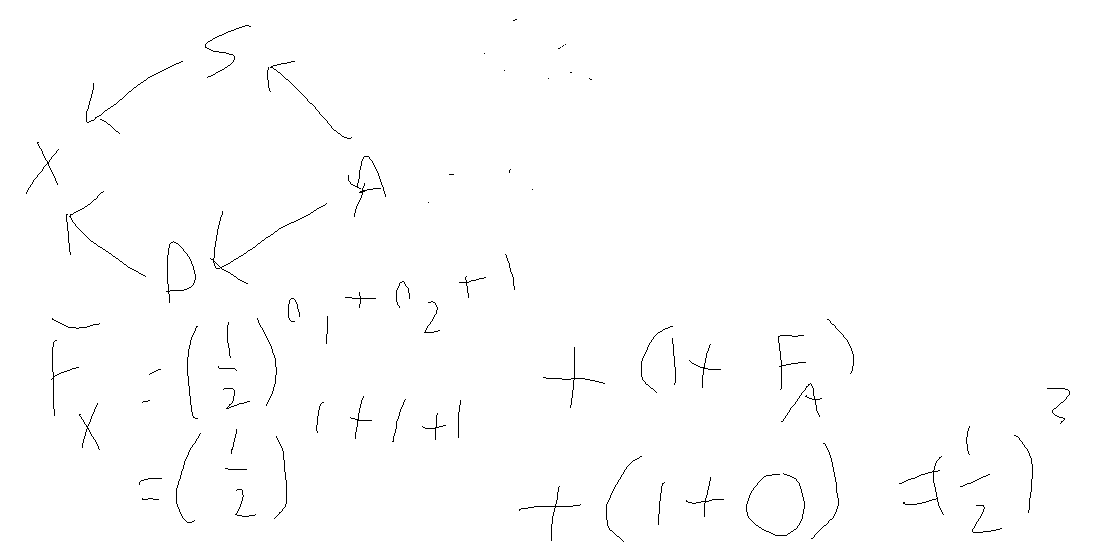 S
X
A
D
F_X = (1/2)^{n_1 + n_2 + 1} + (1 + F_A)
= (1/2)^{1 + 1 + 1} + (1 + 0) = (1/2)^3